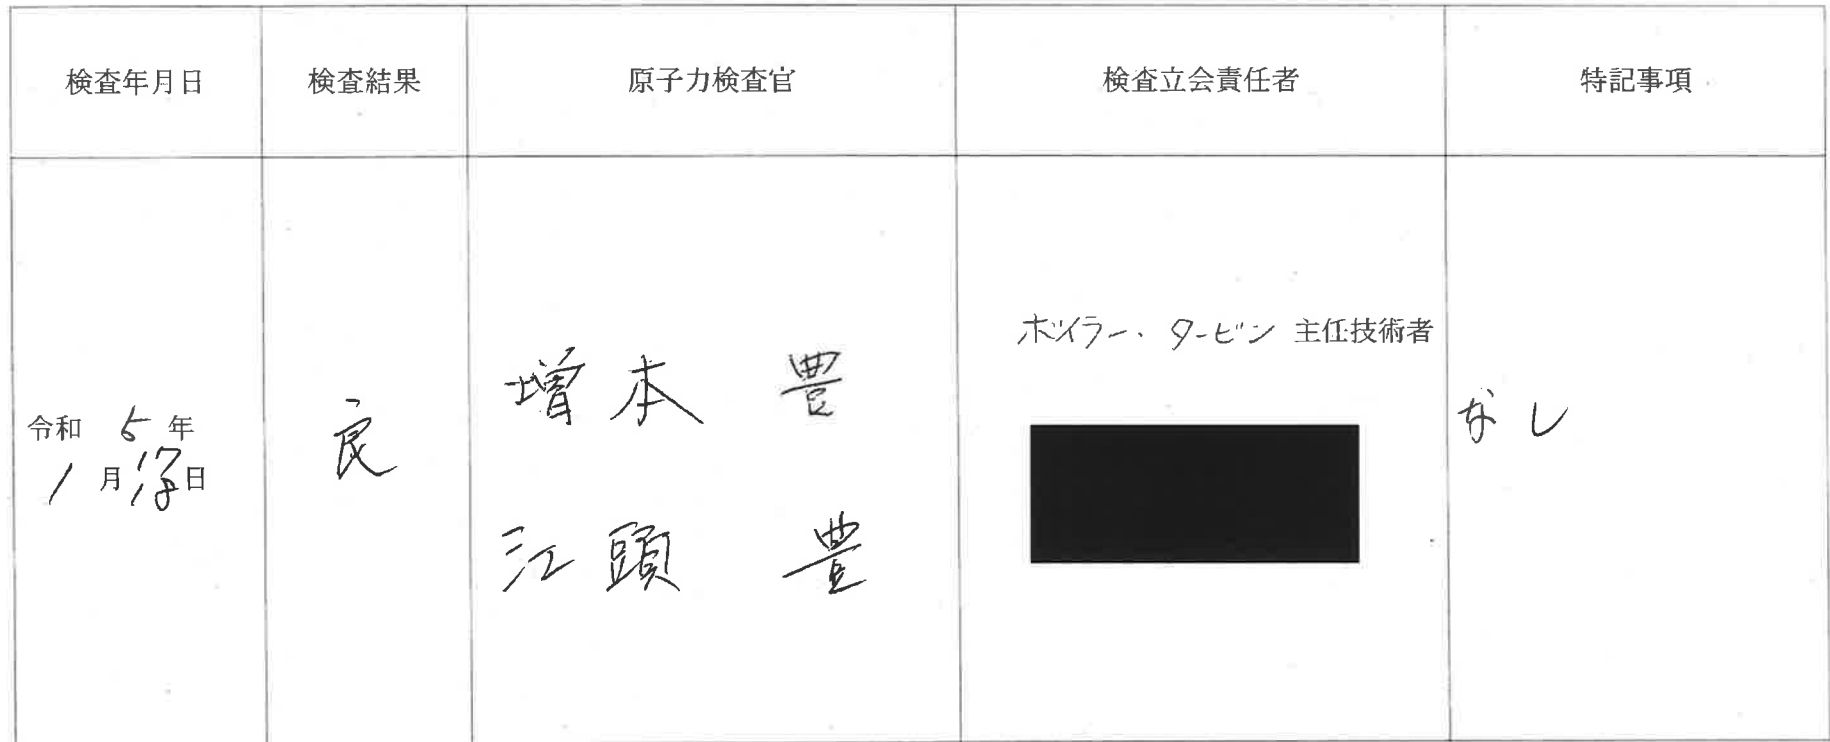 検査年月日
検査結果
原子力検査官
検査立会責任者
特記事項
令和 5 年
1 月 日
良
増本 豊
江頭 豊
ボイラー・タービン 主任技術者
なし